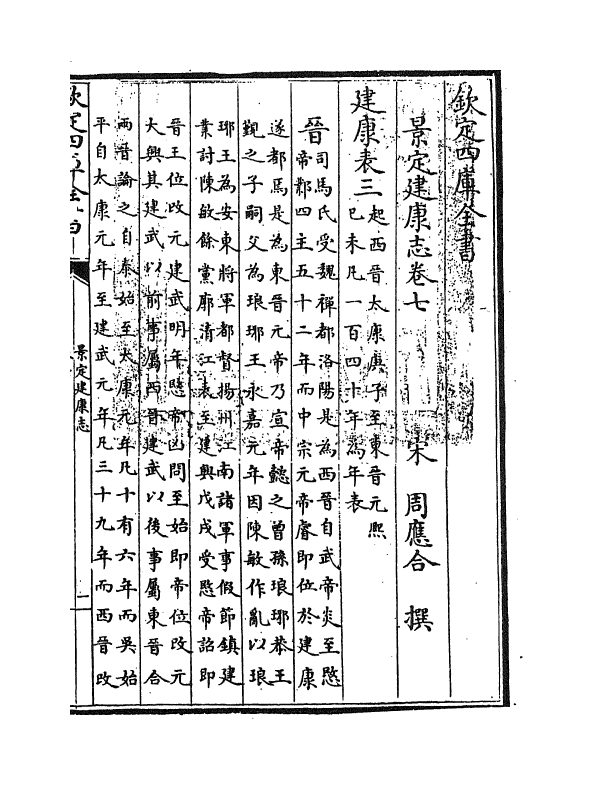 欽定四庫全書
景定建康志卷七
宋 周應合 撰
建康表三
起西晉太康庚子至東晉元熙
已未凡一百四十年為年表
晉
司馬氏受魏禪都洛陽是為西晉自武帝炎至愍
帝鄴四主五十二年而中宗元帝睿即位於建康
遂都焉是為東晉元帝乃宣帝懿之曾孫琅琊恭王
覲之子嗣父為琅琊王永嘉元年因陳敏作亂以琅
琊王為安東將軍都督揚州江南諸軍事假節鎮建
業討陳敏餘黨廓清江表至建興戊戌受愍帝詔即
晉王位改元建武明年愍帝凶問至始即帝位改元
大興其建武以前事屬西晉建武以後事屬東晉合
兩晉論之自泰始至太康元年凡十有六年而吳始
平自太康元年至建武元年凡三十九年而西晉改
欽定四庫全書
景定建康志